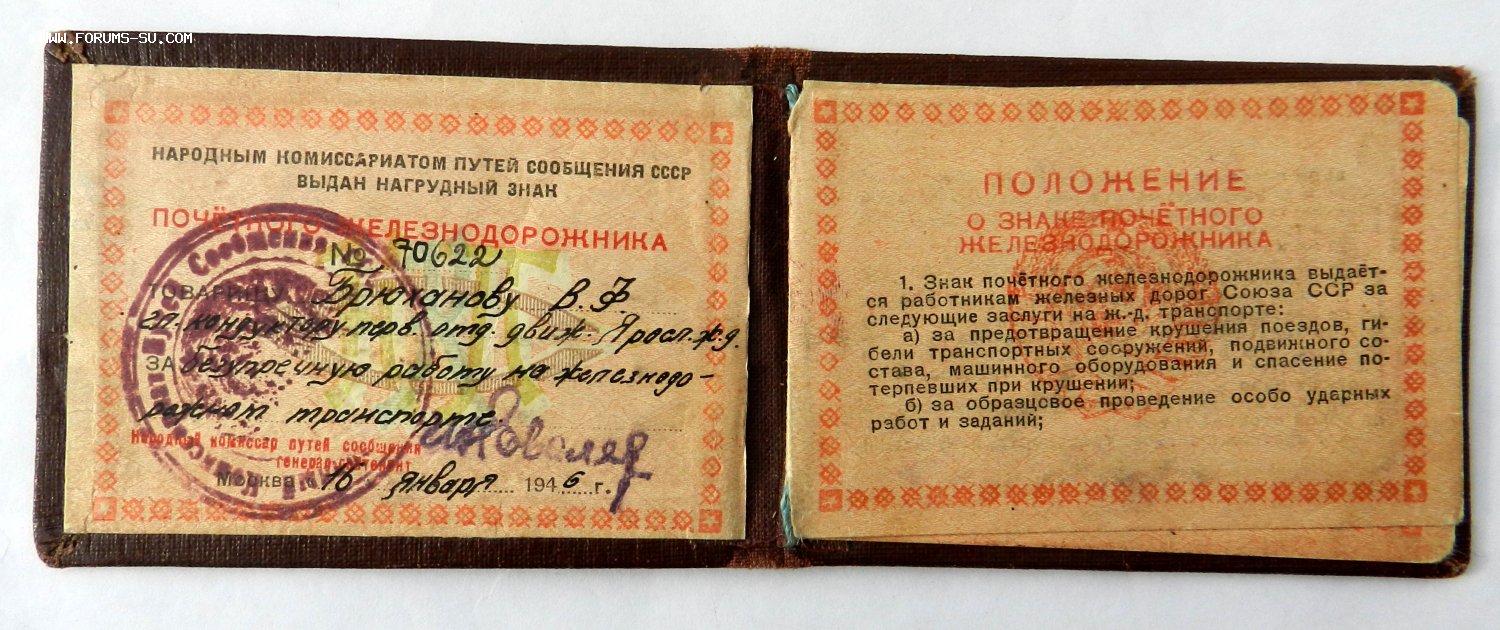 WWW.FORUMS-SU.COM
НАРОДНЫМ КОМИССАРИАТОМ ПУТЕЙ СООБЩЕНИЯ СССР
ВЫДАН НАГРУДНЫЙ ЗНАК
ПОЧЁТНОГО ЖЕЛЕЗНОДОРОЖНИКА
№ 70622
ТОВАРИЩУ Брюханову В. Ф.
гл. кондуктору перв. отд. движ. Яросл. ж.д.
ЗА безупречную работу на железнодо-
рожном транспорте.
Народный комиссар путей сообщения
генерал-лейтенант Ковалев
Москва 16 января 1946 г.
Сообщения
ПОЛОЖЕНИЕ
О ЗНАКЕ ПОЧЁТНОГО
ЖЕЛЕЗНОДОРОЖНИКА
1. Знак почётного железнодорожника выдаёт-
ся работникам железных дорог Союза ССР за
следующие заслуги на ж.-д. транспорте:
а) за предотвращение крушения поездов, ги-
бели транспортных сооружений, подвижного со-
става, машинного оборудования и спасение по-
терпевших при крушении;
б) за образцовое проведение особо ударных
работ и заданий;